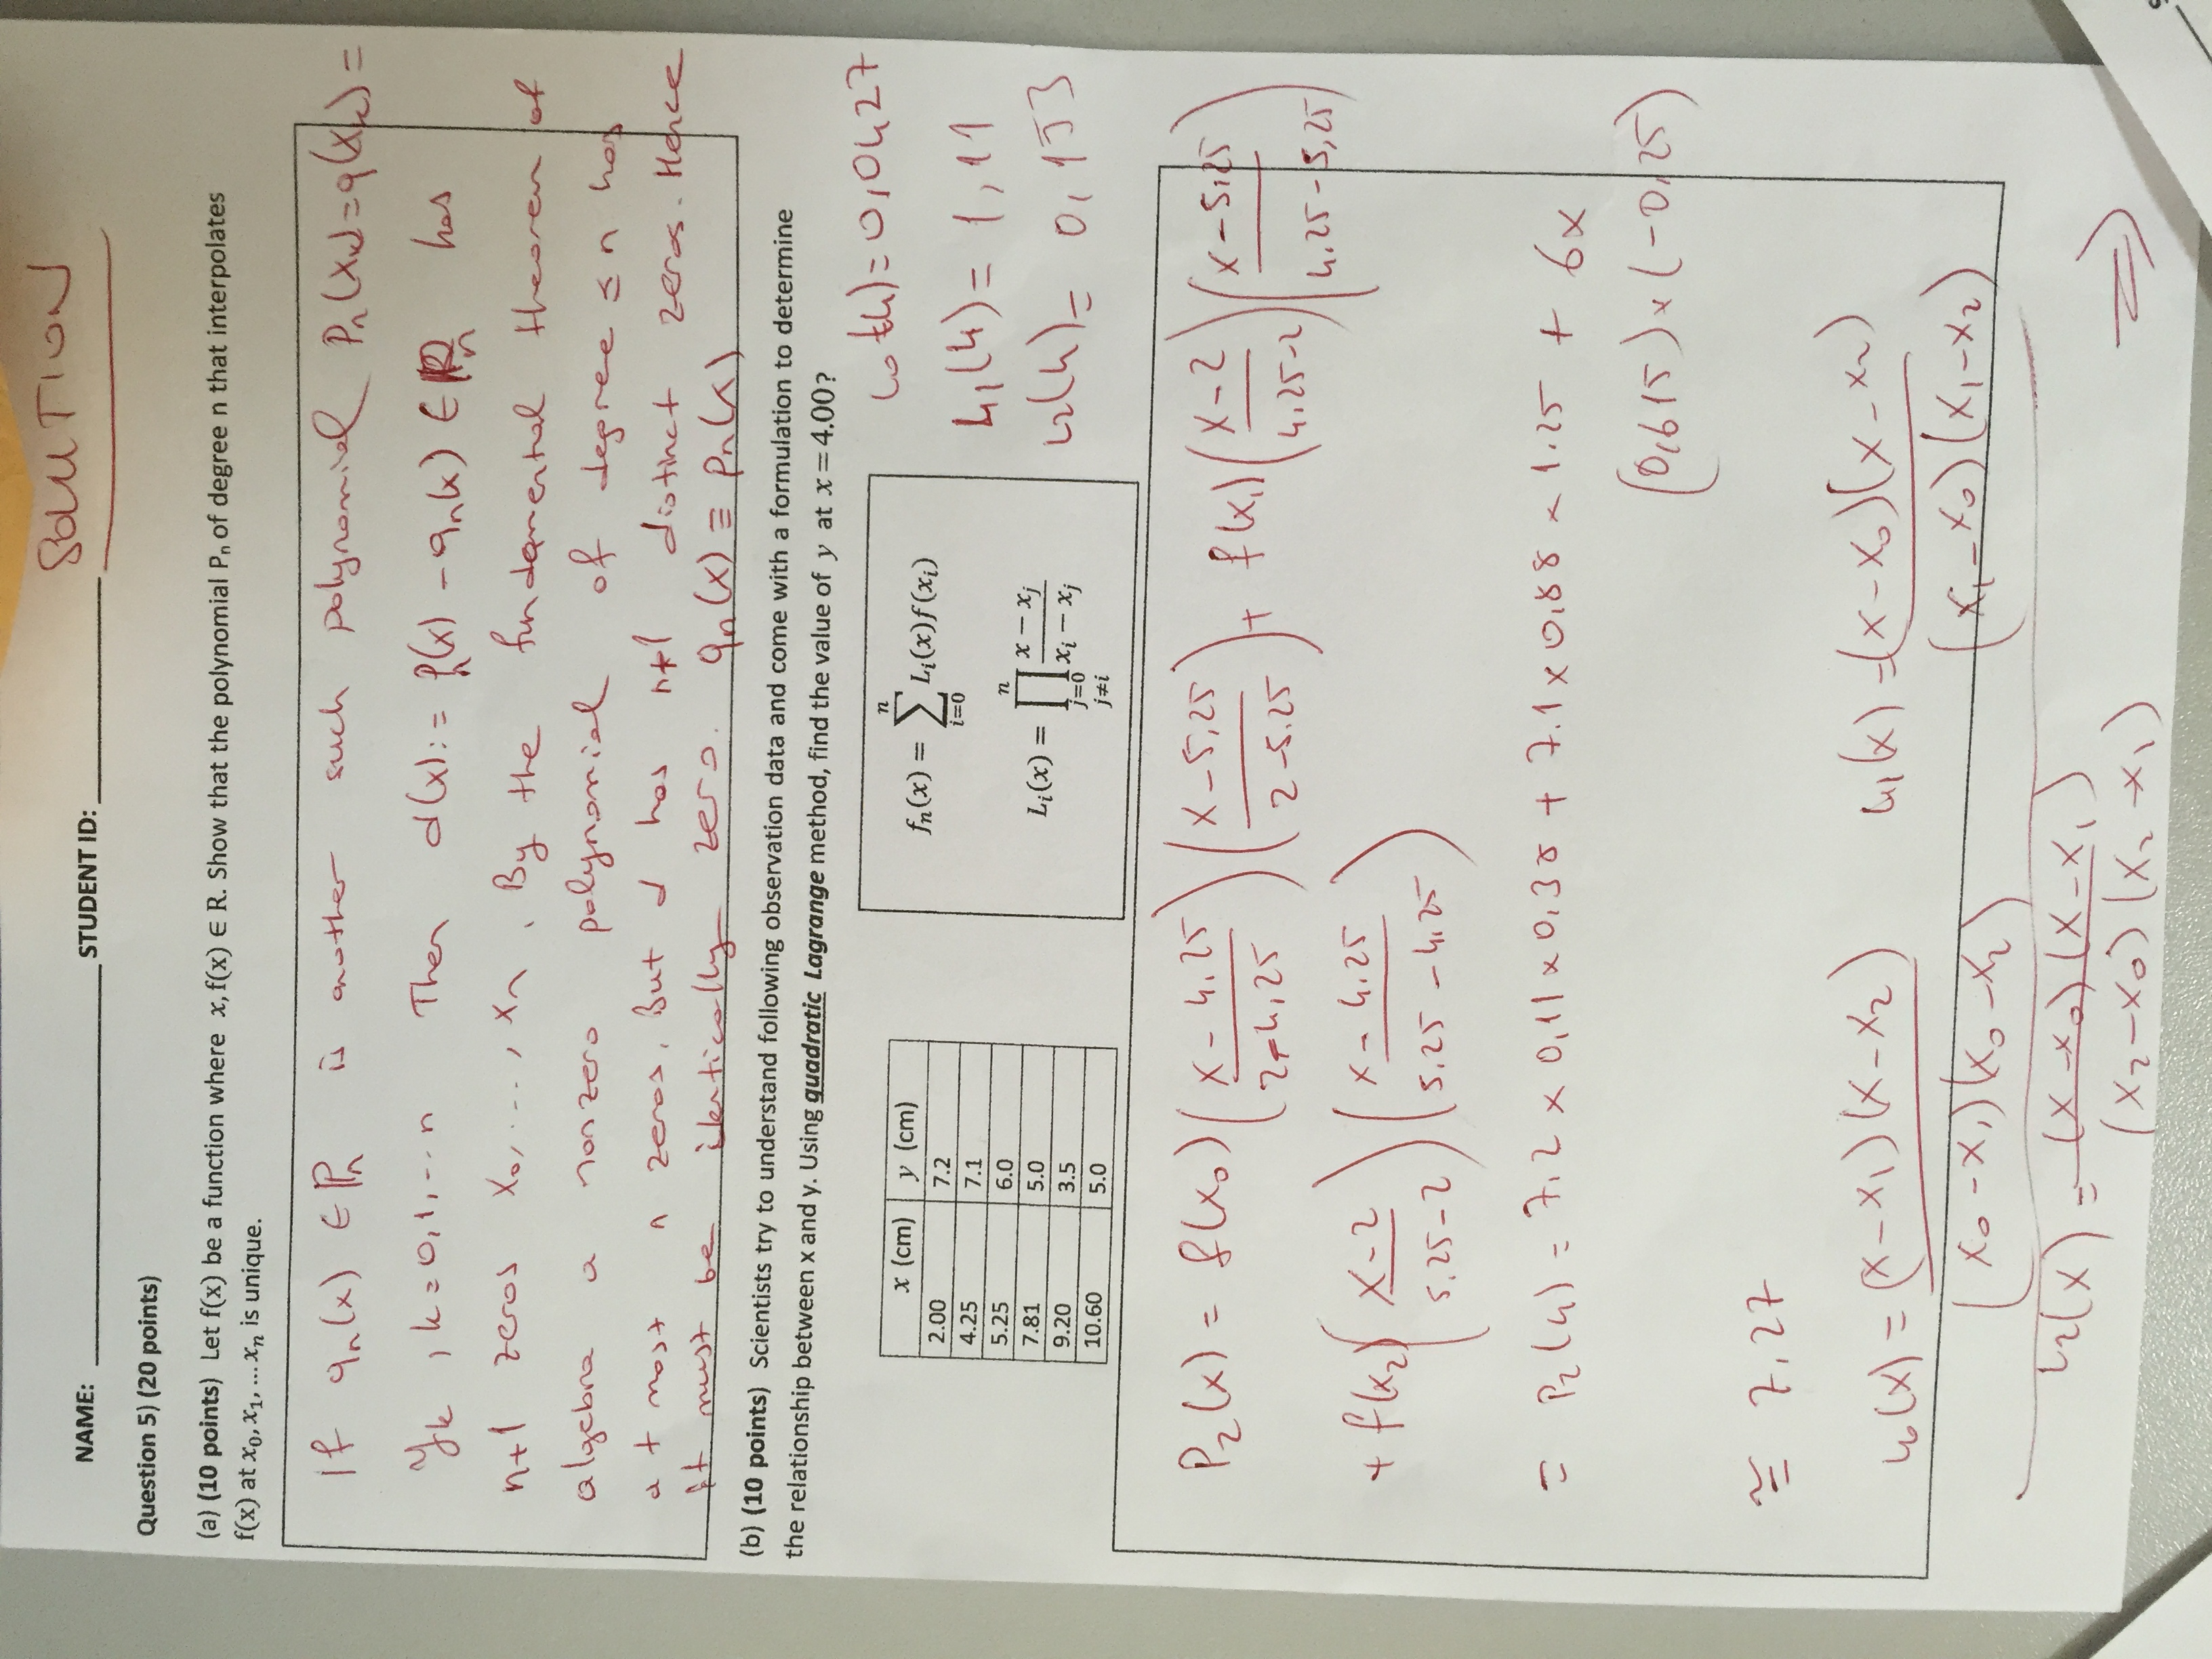 SOLUTION
NAME: ____________ STUDENT ID: ____________
Question 5) (20 points)
(a) (10 points) Let f(x) be a function where x, f(x) ∈ R. Show that the polynomial Pₙ of degree n that interpolates
f(x) at x₀, x₁, ... xₙ is unique.
If qₙ(x) ∈ ℙₙ is another such polynomial Pₙ(xₖ) = q(xₖ) =
yₖ , k = 0,1,...n Then d(x) := pₙ(x) - qₙ(x) ∈ ℙₙ has
n+1 zeros x₀, ..., xₙ. By the fundamental theorem of
algebra a nonzero polynomial of degree ≤ n has
at most n zeros. But d has n+1 distinct zeros. Hence
it must be identically zero. qₙ(x) ≡ pₙ(x)
(b) (10 points) Scientists try to understand following observation data and come with a formulation to determine
the relationship between x and y. Using quadratic Lagrange method, find the value of y at x = 4.00?
x (cm) y (cm)
2.00 7.2
4.25 7.1
5.25 6.0
7.81 5.0
9.20 3.5
10.60 5.0
fₙ(x) = ∑ᵢ₌₀ⁿ Lᵢ(x)f(xᵢ)
Lᵢ(x) = ∏ⱼ₌₀, ⱼ≠ᵢⁿ (x − xⱼ)/(xᵢ − xⱼ)
L₀(4) = 0,0427
L₁(4) = 1,11
L₂(4) = 0,153
P₂(x) = f(x₀) ((x - 4,25)/(2-4,25)) ((x - 5,25)/(2-5.25)) + f(x₁) ((x-2)/(4.25-2)) ((x-5,25)/(4.25-5,25))
+ f(x₂) ((x-2)/(5.25-2)) ((x-4.25)/(5.25-4.25))
= P₂(4) = 7.2 x 0,11 x 0,38 + 7.1 x 0,88 x 1.25 + 6x
(0,615) x (-0,25)
≅ 7,27
L₀(x) = (x-x₁)(x-x₂)/(x₀-x₁)(x₀-x₂) L₁(x) = (x-x₀)(x-x₂)/(x₁-x₀)(x₁-x₂)
L₂(x) = (x-x₀)(x-x₁)/(x₂-x₀)(x₂-x₁) ⇒